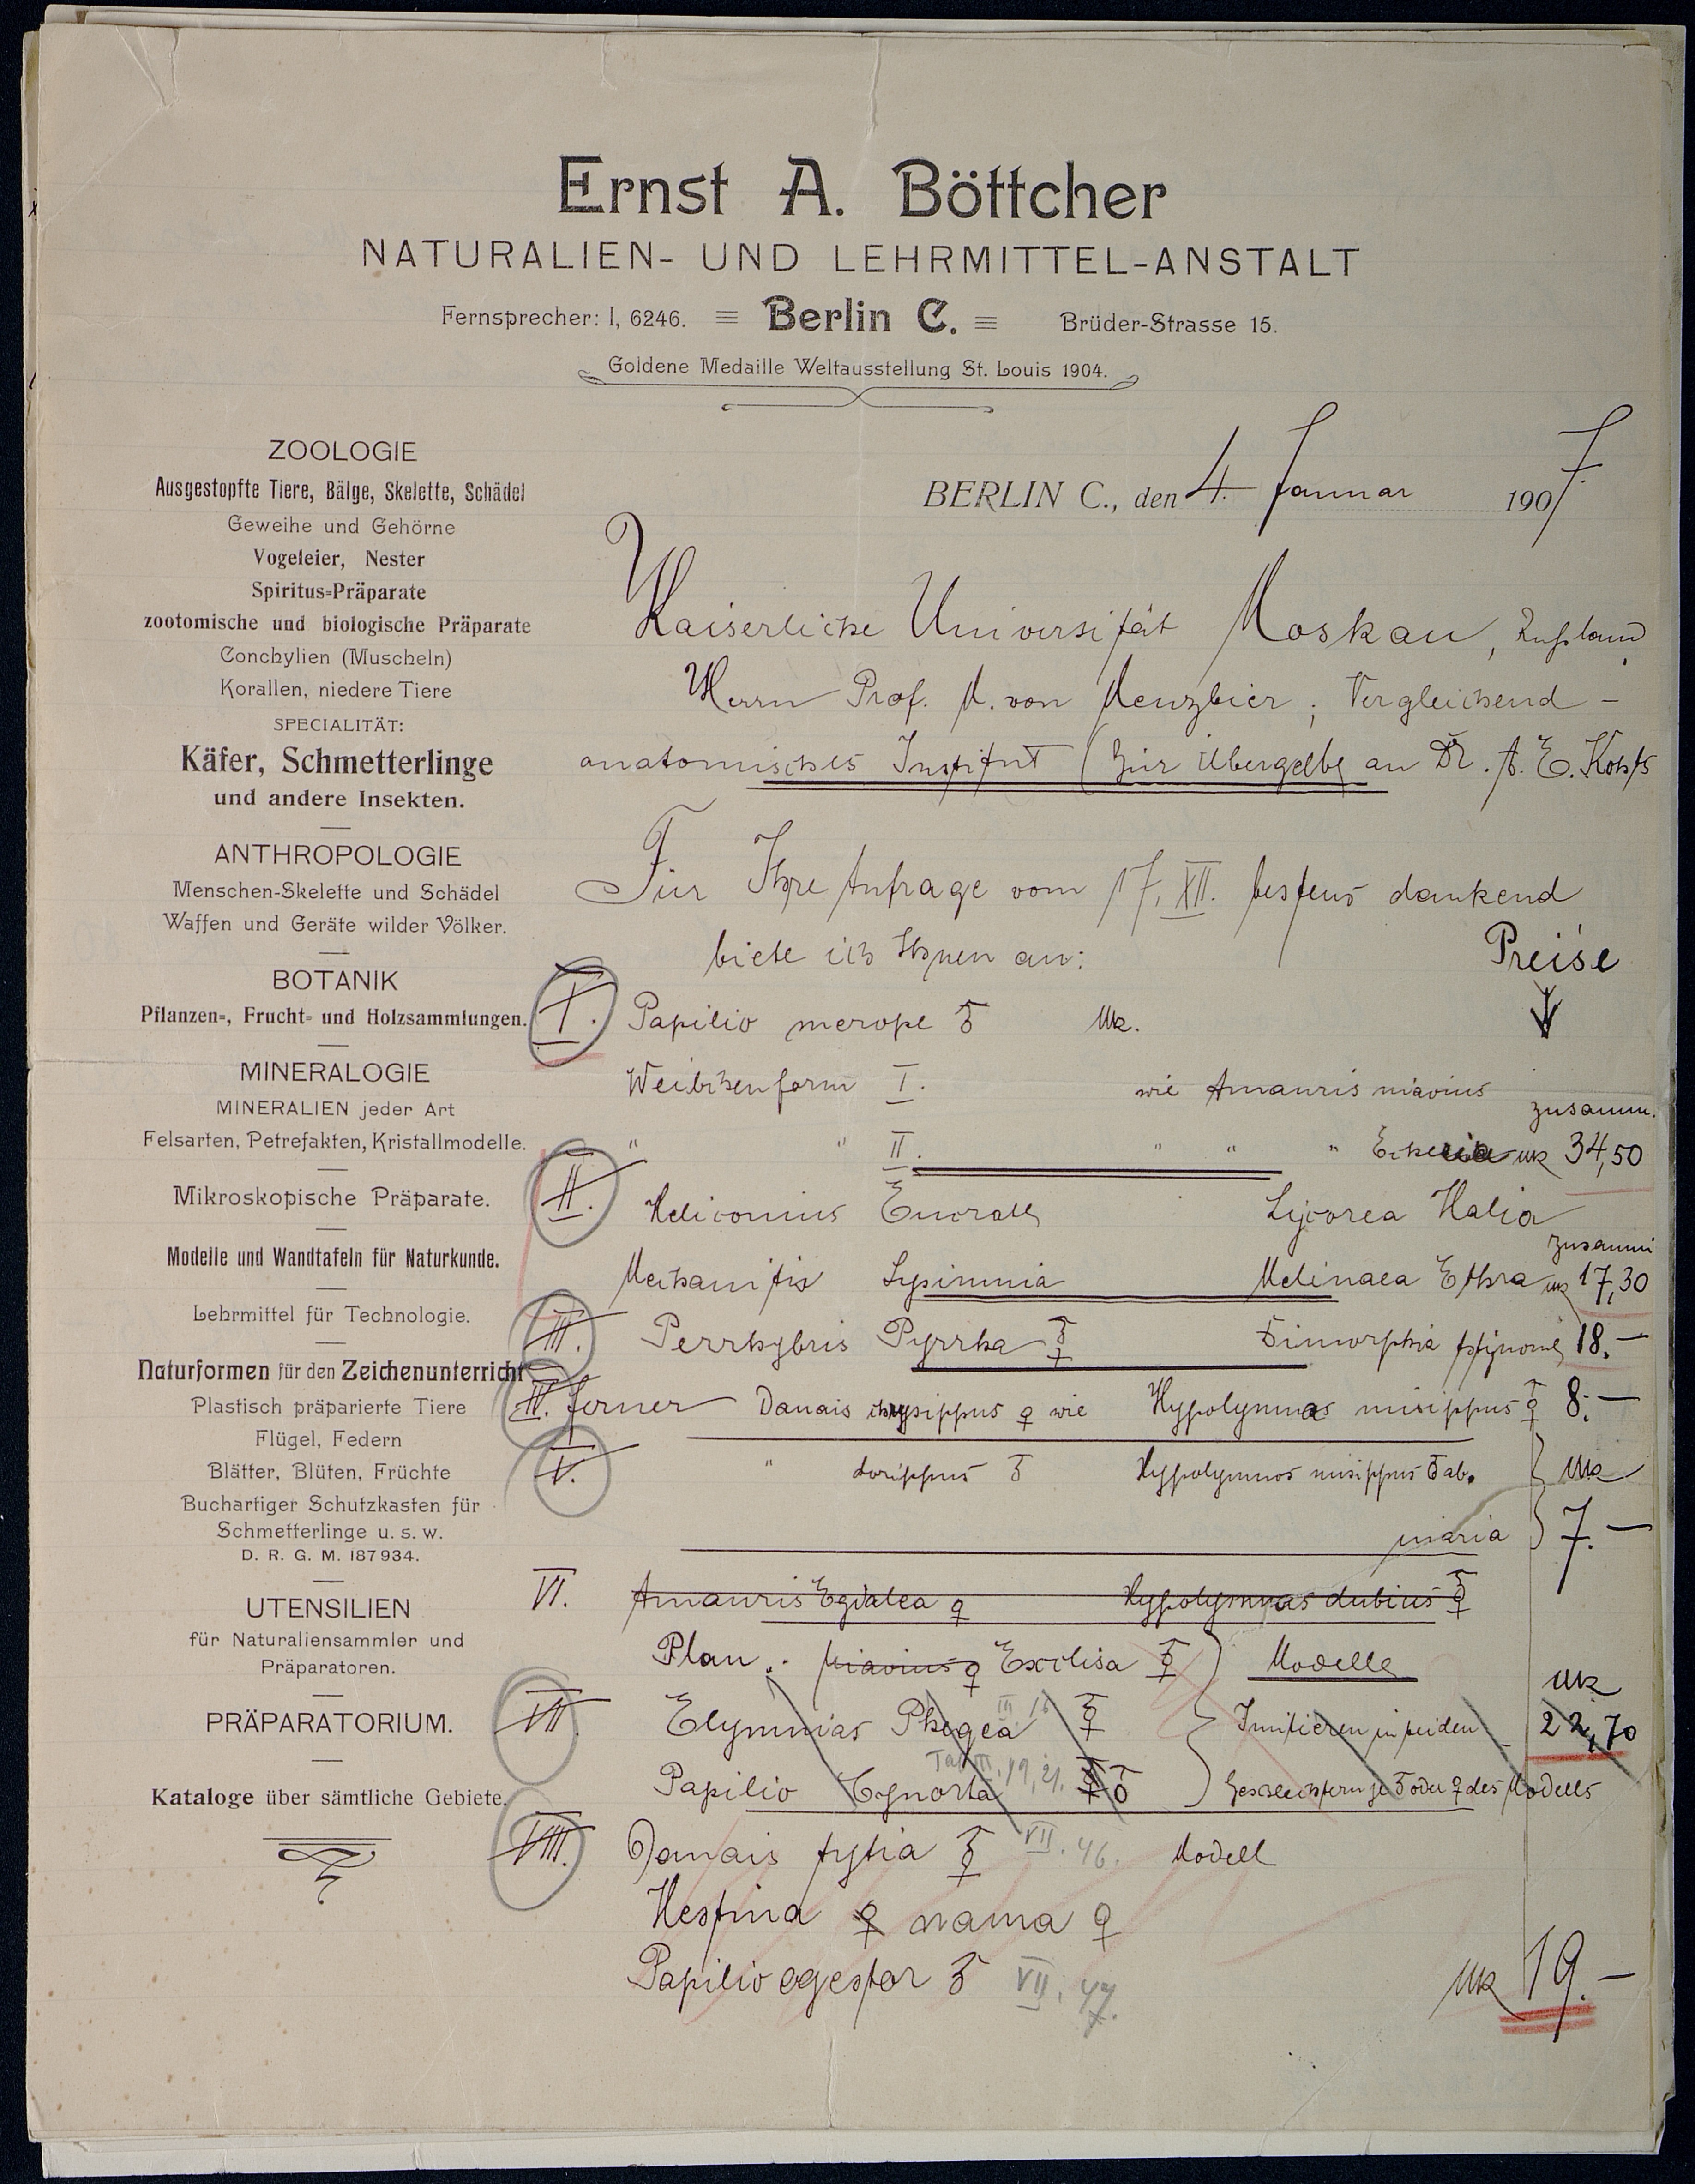 Ernst A. Böttcher
NATURALIEN- UND LEHRMITTEL-ANSTALT
Fernsprecher: I, 6246. Berlin C. Brüder-Strasse 15.
Goldene Medaille Weltausstellung St. Louis 1904.
ZOOLOGIE
Ausgestopfte Tiere, Bälge, Skelette, Schädel
Geweihe und Gehörne
Vogeleier, Nester
Spiritus-Präparate
zootomische und biologische Präparate
Conchylien (Muscheln)
Korallen, niedere Tiere
SPECIALITÄT:
Käfer, Schmetterlinge
und andere Insekten.
ANTHROPOLOGIE
Menschen-Skelette und Schädel
Waffen und Geräte wilder Völker.
BOTANIK
Pflanzen-, Frucht- und Holzsammlungen.
MINERALOGIE
MINERALIEN jeder Art
Felsarten, Petrefakten, Kristallmodelle.
Mikroskopische Präparate.
Modelle und Wandtafeln für Naturkunde.
Lehrmittel für Technologie.
Naturformen für den Zeichenunterricht
Plastisch präparierte Tiere
Flügel, Federn
Blätter, Blüten, Früchte
Buchartiger Schutzkasten für
Schmetterlinge u. s. w.
D. R. G. M. 187934.
UTENSILIEN
für Naturaliensammler und
Präparatoren.
PRÄPARATORIUM.
Kataloge über sämtliche Gebiete.
BERLIN C., den 4. Januar 1907.
Kaiserliche Universität Moskau, Rußland
Herrn Prof. M. von Menzbier, Vergleichend-
anatomisches Institut (Zur Übergabe an Dr. A. E. Kohts
Für Ihre Anfrage vom 17. XII. bestens dankend
biete ich Ihnen an: Preise
I. Papilio merope ♂ Mk.
Weibchenform I. wie Amauris niavius
zusamm.
" " II. " " " Echeria Mk 34,50
II. Heliconius Eucrate Lycorea Halia
zusamm
Mechanitis Lysimnia Melinaea Ethra Mk 17,30
III. Perrhybris Pyrrha ♂♀ Dimorphia Astynome 18.-
IV. ferner Danais chrysippus ♀ wie Hypolymnas misippus ♂♀ 8.-
V. " dorippus ♂ Hypolymnas misippus ♂ ab. Mk
inaria 7.-
VI. Amauris Egialea ♀ Hypolymnas dubius ♂♀
Plan. niavius ♀ Excelisa ♂♀ Modelle
Mk
VII. Elymnias Phegea III 16 ♂♀ Imitieren in beiden 22,70
Taf III. 19, 21.
Papilio Cynorta ♂♀ ♂ Geschlechtern je ♂ oder ♀ des Modells
VIII. Danais tytia ♂♀ VII. 46. Modell
Hestina ♀ nama ♀
Papilio agestor ♂ VII. 47. Mk 19.-